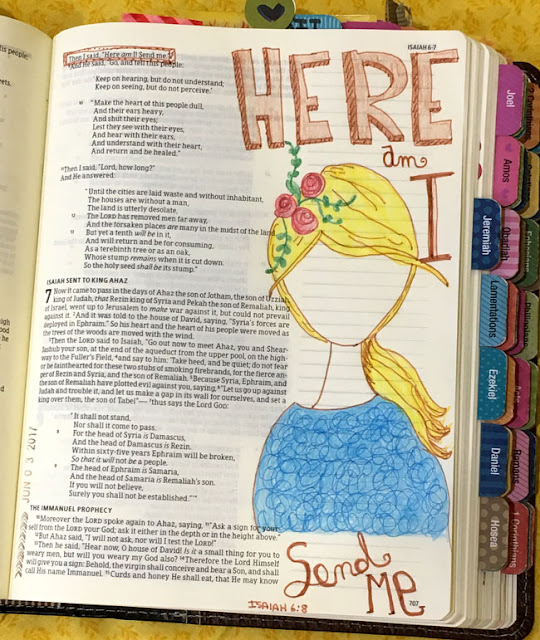 ISAIAH 6-7
HERE
am
I
Then I said, "Here am I! Send me."
9 And He said, "Go, and tell this people:
'Keep on hearing, but do not understand;
Keep on seeing, but do not perceive.'
10 "Make the heart of this people dull,
And their ears heavy,
And shut their eyes;
Lest they see with their eyes,
And hear with their ears,
And understand with their heart,
And return and be healed."
11 Then I said, "Lord, how long?"
And He answered:
"Until the cities are laid waste and without inhabitant,
The houses are without a man,
The land is utterly desolate,
12 The LORD has removed men far away,
And the forsaken places are many in the midst of the land.
13 But yet a tenth will be in it,
And will return and be for consuming,
As a terebinth tree or as an oak,
Whose stump remains when it is cut down.
So the holy seed shall be its stump."
ISAIAH SENT TO KING AHAZ
7 Now it came to pass in the days of Ahaz the son of Jotham, the son of Uzziah,
king of Judah, that Rezin king of Syria and Pekah the son of Remaliah, king
of Israel, went up to Jerusalem to make war against it, but could not prevail
against it. 2 And it was told to the house of David, saying, "Syria's forces are
deployed in Ephraim." So his heart and the heart of his people were moved as
the trees of the woods are moved with the wind.
3 Then the LORD said to Isaiah, "Go out now to meet Ahaz, you and Shear-
Jashub your son, at the end of the aqueduct from the upper pool, on the high-
way to the Fuller's Field, 4 and say to him: 'Take heed, and be quiet; do not fear
or be fainthearted for these two stubs of smoking firebrands, for the fierce an-
ger of Rezin and Syria, and the son of Remaliah. 5 Because Syria, Ephraim, and
the son of Remaliah have plotted evil against you, saying, 6 "Let us go up against
Judah and trouble it, and let us make a gap in its wall for ourselves, and set a
king over them, the son of Tabel"— 7 thus says the Lord GOD:
"It shall not stand,
Nor shall it come to pass.
8 For the head of Syria is Damascus,
And the head of Damascus is Rezin.
Within sixty-five years Ephraim will be broken,
So that it will not be a people.
9 The head of Ephraim is Samaria,
And the head of Samaria is Remaliah's son.
If you will not believe,
Surely you shall not be established."'"
THE IMMANUEL PROPHECY
10 Moreover the LORD spoke again to Ahaz, saying, 11 "Ask a sign for your-
self from the LORD your God; ask it either in the depth or in the height above."
12 But Ahaz said, "I will not ask, nor will I test the LORD!"
13 Then he said, "Hear now, O house of David! Is it a small thing for you to
weary men, but will you weary my God also? 14 Therefore the Lord Himself
will give you a sign: Behold, the virgin shall conceive and bear a Son, and shall
call His name Immanuel. 15 Curds and honey He shall eat, that He may know
JUN 03 2017
Send
Me
ISAIAH 6:8
707
Joel
Amos
Obadiah
Jeremiah
Lamentations
Ezekiel
Daniel
Hosea
Ephesians
Philippians
Acts
Romans
1 Corinthians